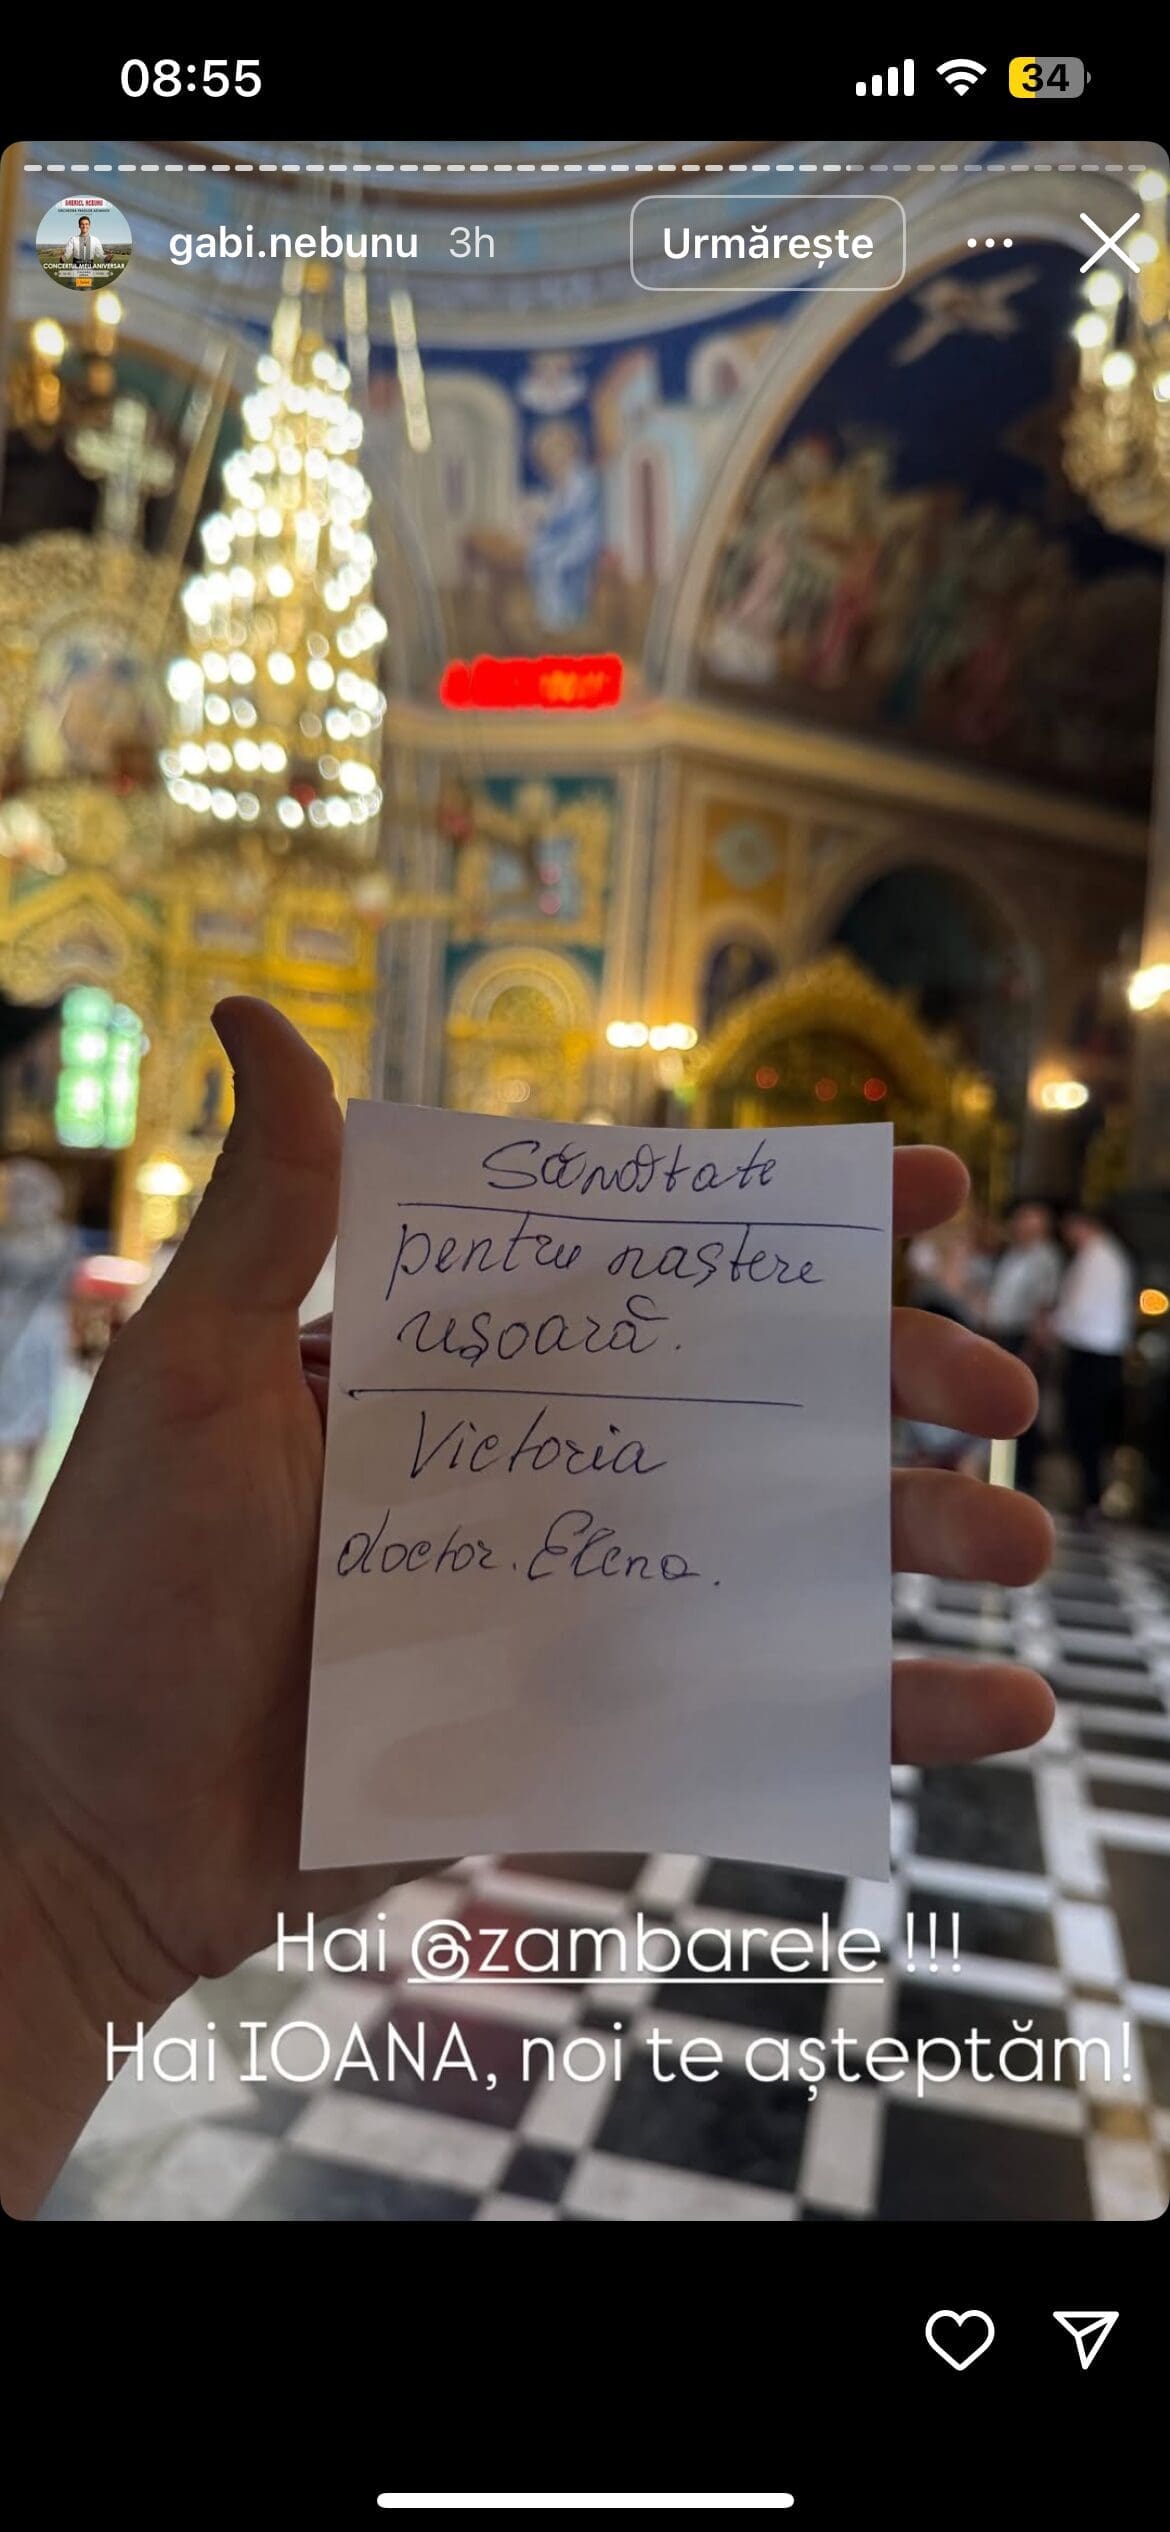 08:55
34
GABRIEL NEBUNU
CONCERTUL MEU ANIVERSAR
gabi.nebunu 3h
Urmărește
Sănătate
pentru naștere
ușoară.
Victoria
doctor. Elena.
Hai @zambarele !!!
Hai IOANA, noi te așteptăm!